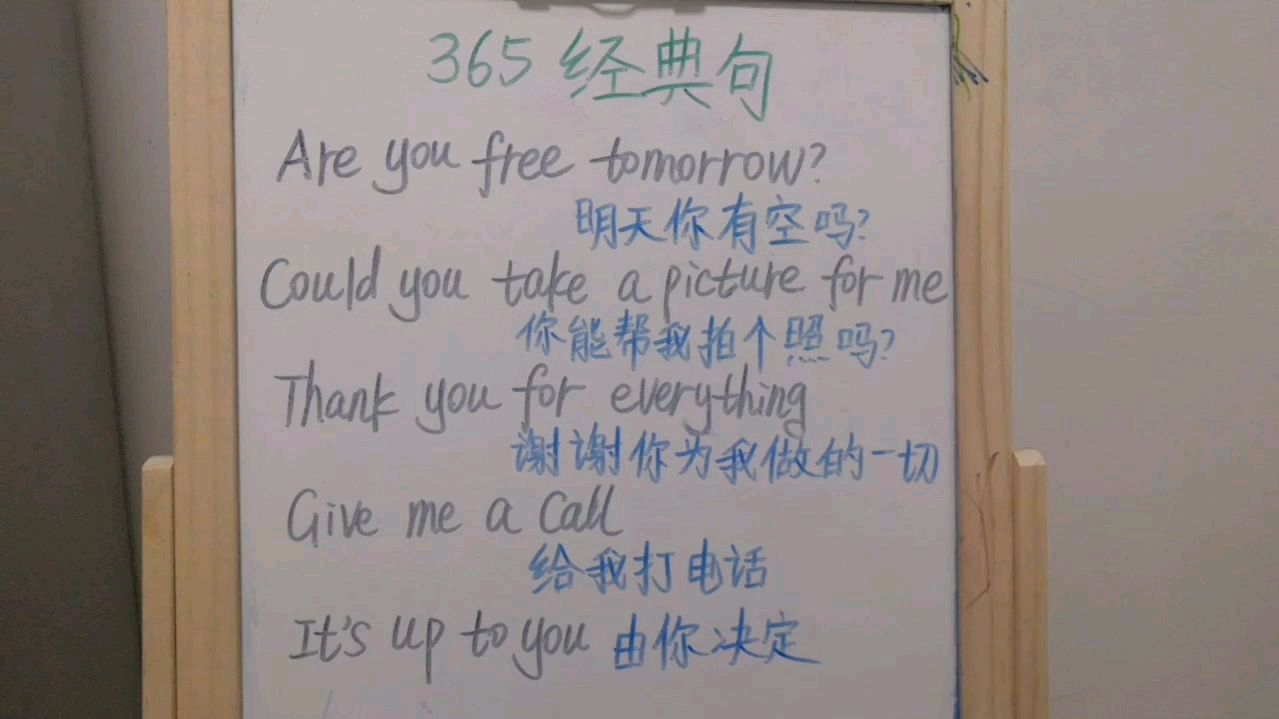 365 经典句
Are you free tomorrow?
明天你有空吗?
Could you take a picture for me
你能帮我拍个照吗?
Thank you for everything
谢谢你为我做的一切
Give me a call
给我打电话
It's up to you 由你决定